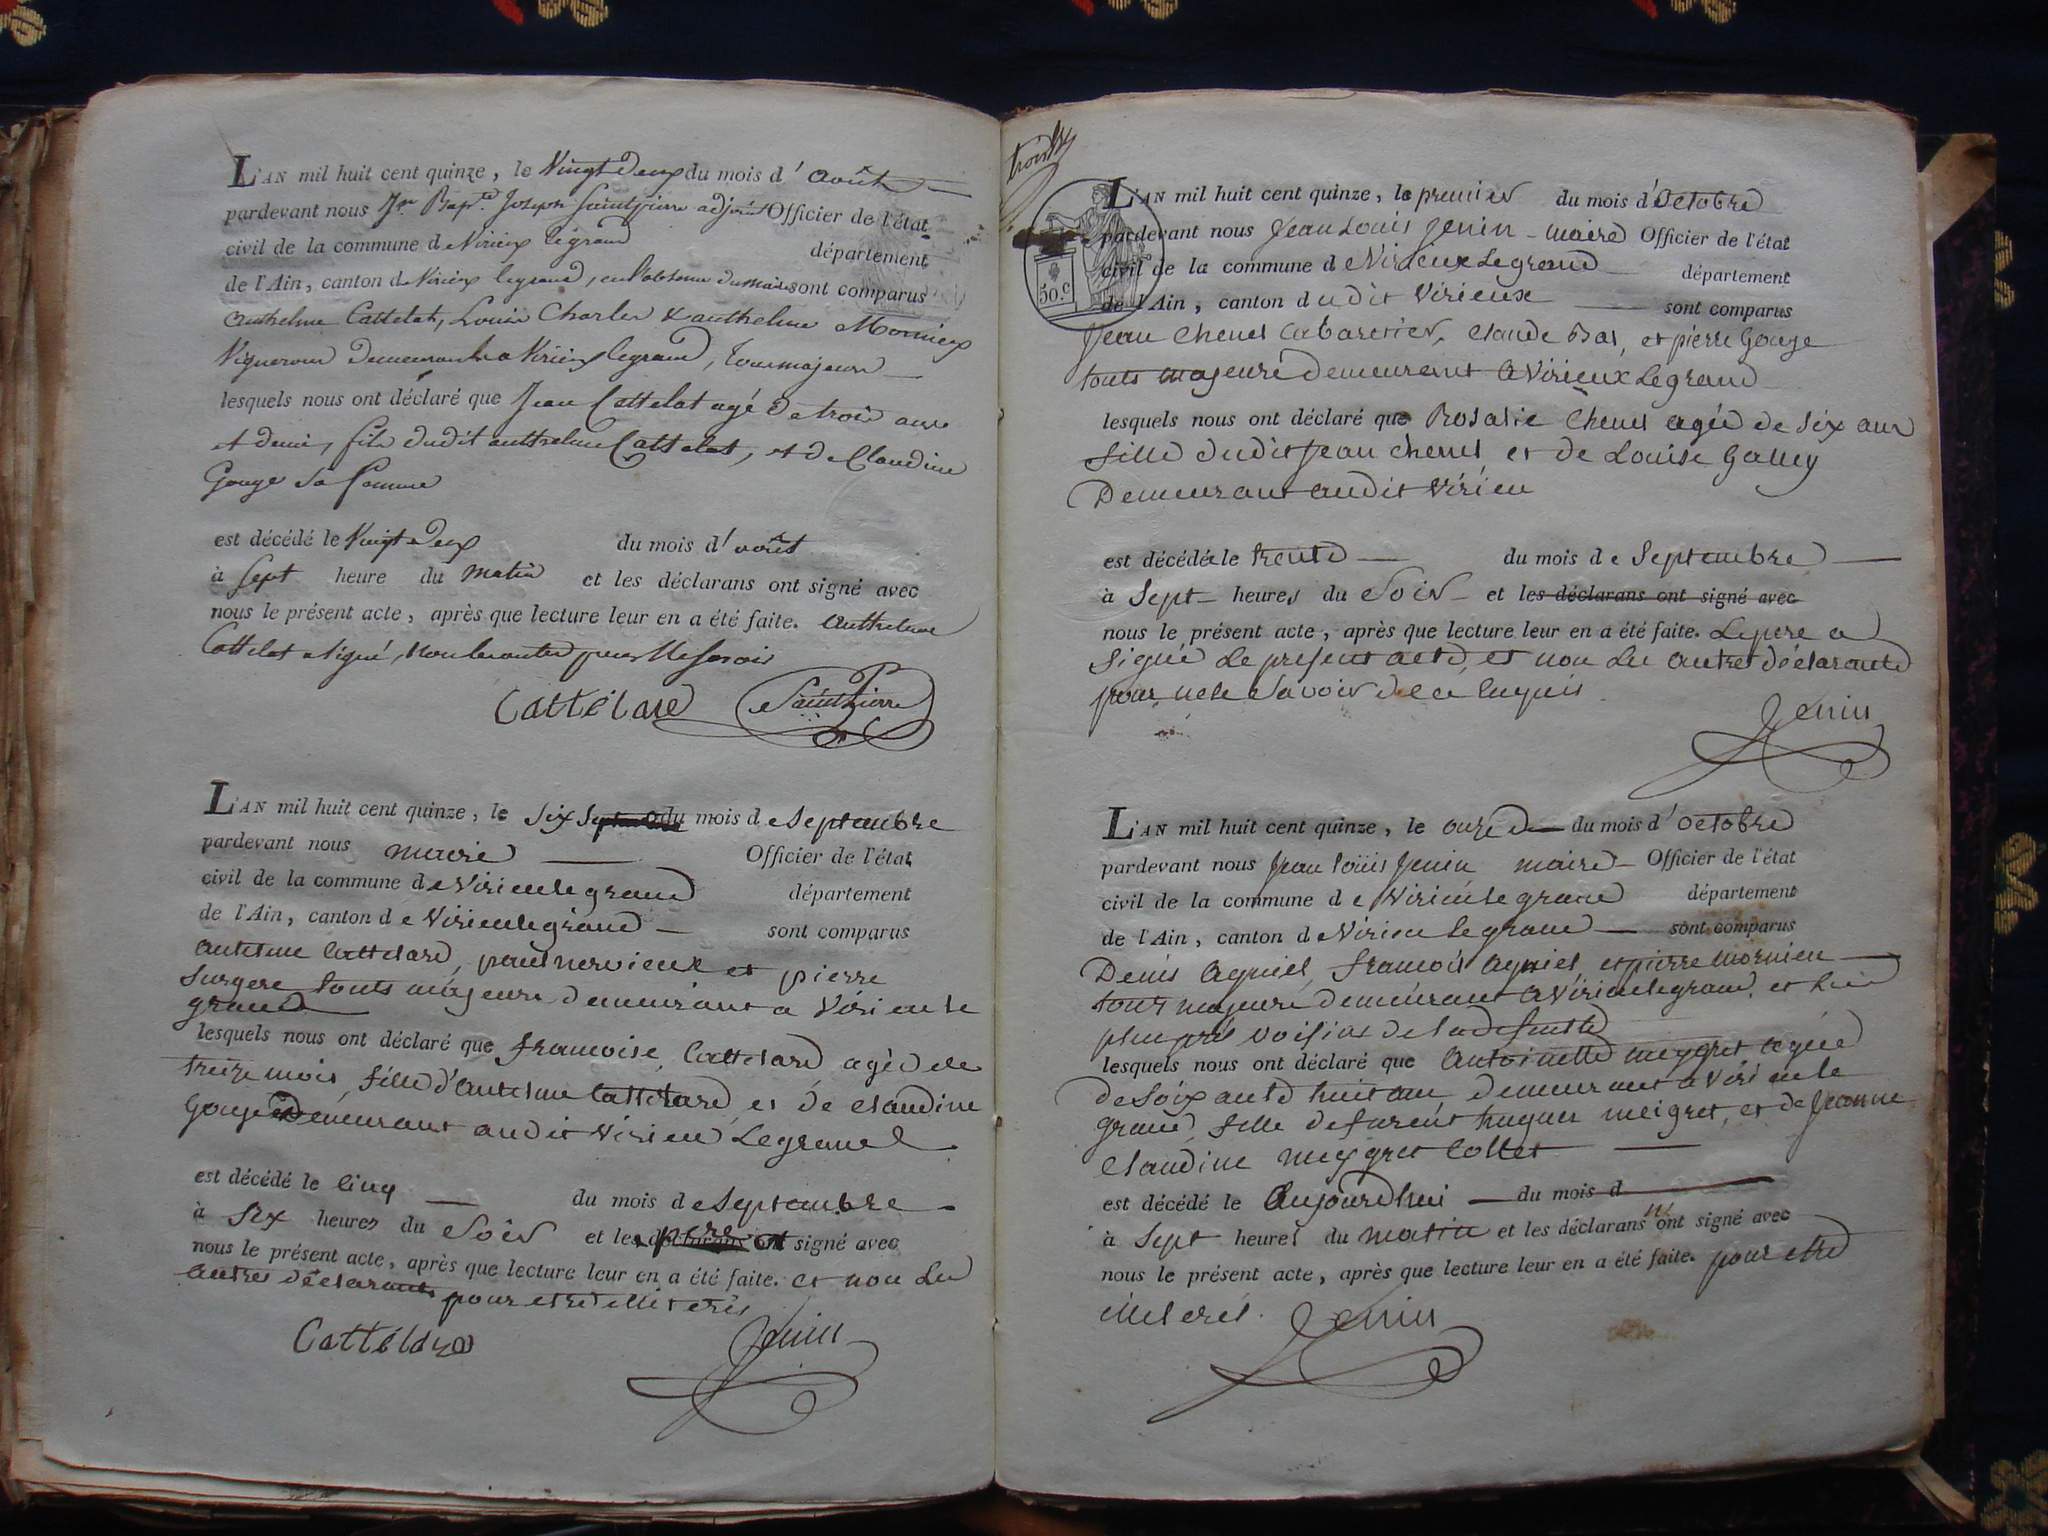 L'AN mil huit cent quinze, le Vingt Deux du mois d'août
pardevant nous Jn Bapte. Joseph Saintpierre adjoint Officier de l'état
civil de la commune de Virieux legrand département
de l'Ain, canton de Virieux legrand, en l'absence du maire sont comparus
anthelme Cattelat, Louis Charles & anthelme Mornieux
Vignerons demeurants a Virieux legrand, tous majeurs
lesquels nous ont déclaré que Jean Cattelat agé de trois ans
et demi, fils dudit anthelme Cattelat, et de Claudine
Gouge sa femme
est décédé le Vingt Deux du mois d'août
à Sept heure du matin et les déclarans ont signé avec
nous le présent acte, après que lecture leur en a été faite. anthelme
Cattelat a signé, non les autres pour ne savoir
CattéLard SaintPierre
L'AN mil huit cent quinze, le Six du mois de Septembre
pardevant nous maire Officier de l'état
civil de la commune de Virieulegrand département
de l'Ain, canton de Virieulegrand sont comparus
antelme Cattelard, paul nervieux et pierre
Surgere touts majeurs demeurant a Virieu le
grand
lesquels nous ont déclaré que francoise Cattelard agée de
treize mois, fille d'antelme Cattelard, et de claudine
Gouge Demeurant audit Virieu Legrand
est décédé le cinq du mois de Septembre
à Six heures du Soir et les père ont signé avec
nous le présent acte, après que lecture leur en a été faite. et non les
autres déclarants pour etre illiterés
CattéLard Jenin
trois
50.c
L'AN mil huit cent quinze, le premier du mois d'Octobre
pardevant nous Jean Louis Jenin maire Officier de l'état
civil de la commune de Virieux Legrand département
de l'Ain, canton dudit Virieux sont comparus
Jean Chenel Cabaretier, claude Bal, et pierre Gouge
touts majeurs Demeurant a Virieux Legrand
lesquels nous ont déclaré que Rosalie Chenel agée de Six ans
fille dudit Jean Chenel et de Louise Galley
Demeurant audit Virieu
est décédée le trente du mois de Septembre
à Sept heures du Soir et les déclarans ont signé avec
nous le présent acte, après que lecture leur en a été faite. Le pere a
Signé Le present acte, et non Les autres déclarants
pour ne le Savoir de ce Enquis
Jenin
L'AN mil huit cent quinze, le onze du mois d'Octobre
pardevant nous Jean Louis Jenin maire Officier de l'état
civil de la commune de Virieu le grand département
de l'Ain, canton de Virieu Le grand sont comparus
Denis agniel, francois agniel, et pierre mornieu
tous majeurs demeurant a Virieulegrand, et les
plus près voisins de la defunte
lesquels nous ont déclaré que antoinette meygret agée
de Soixante huit ans demeurant a Virieu le
grand, fille de furent hugues meigret, et de Jeanne
Claudine meygret Collet
est décédé le aujourdhui du mois d
à Sept heures du matin et les déclarans n'ont signé avec
nous le présent acte, après que lecture leur en a été faite. pour etre
illiterés. Jenin